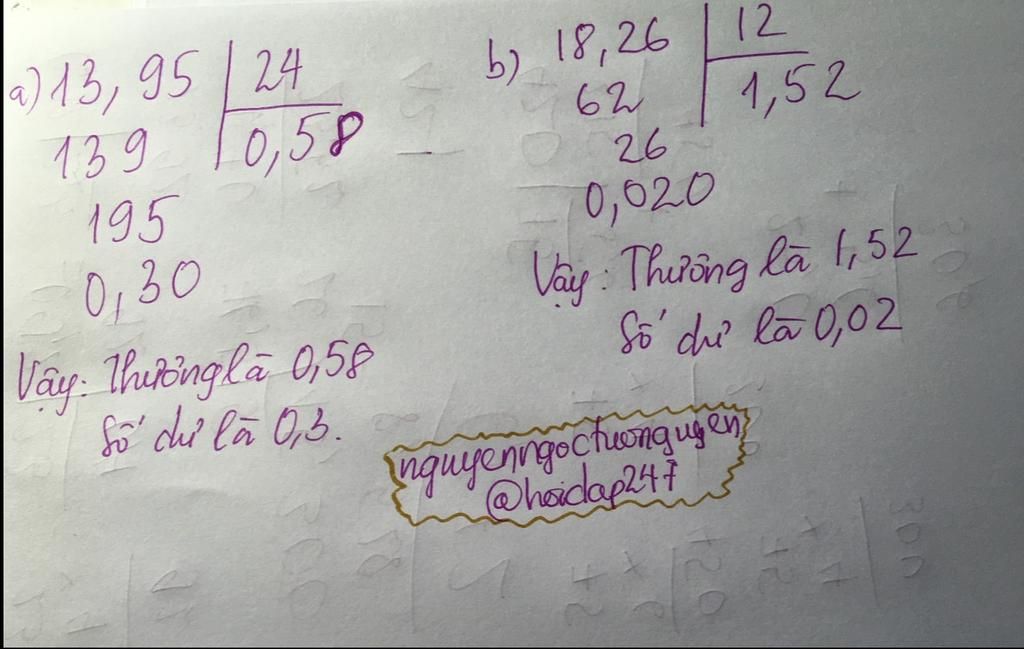 a) 13,95 | 24
139 | 0,58
195
0,30
Vậy: Thương là 0,58
Số dư là 0,3.
b) 18,26 | 12
62 | 1,52
26
0,020
Vậy: Thương là 1,52
Số dư là 0,02
nguyenngoctuonguyen
@hoidap247